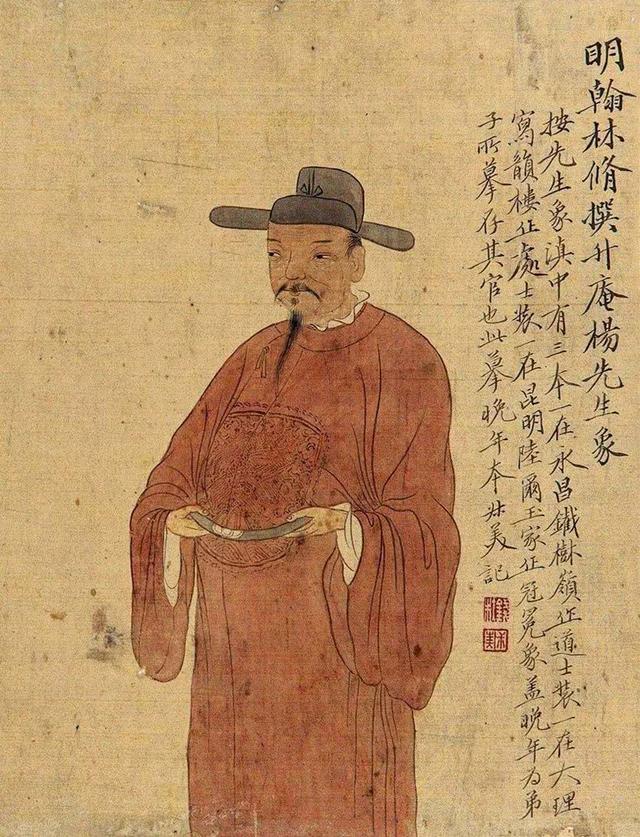 明翰林脩撰升庵楊先生象
按先生象滇中有三本一在永昌鐵樹嶺作道士裝一在大理
寫韻樓作處士裝一在昆明陸爾玉家作冠冕象蓋晚年為弟
子所摹存其官也此摹晚年本冰美記